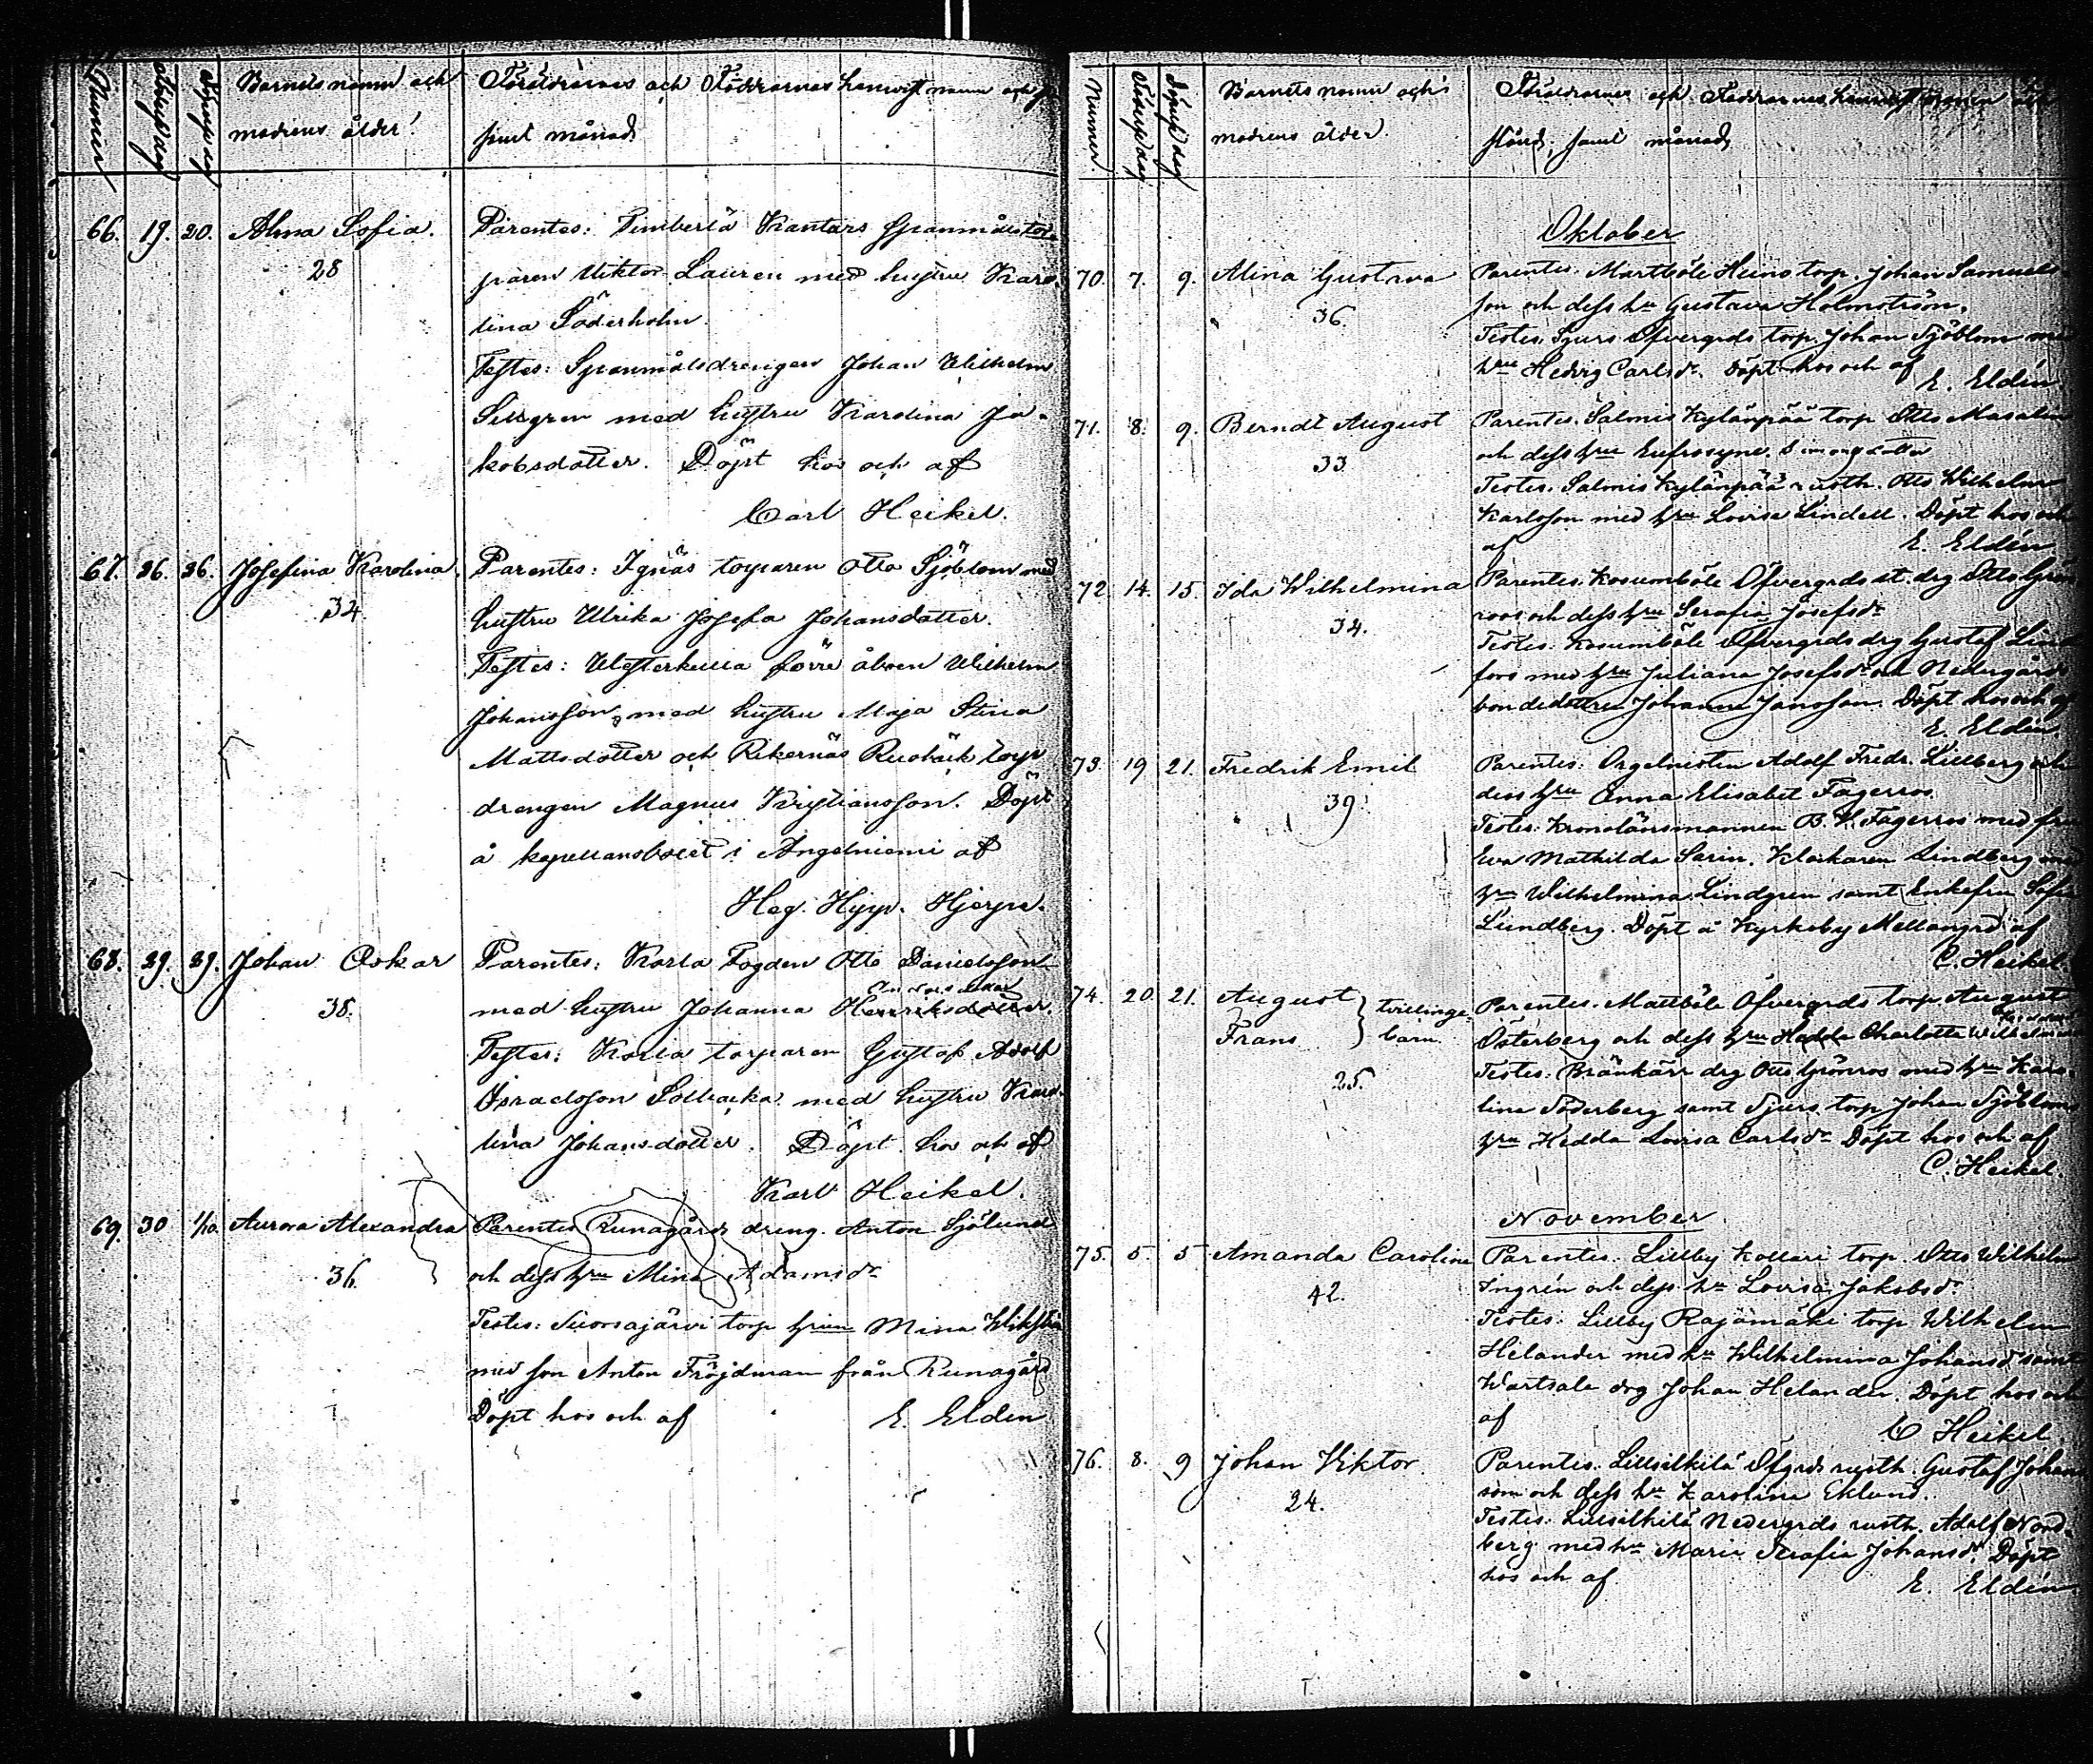 Numer
Födelsedag
Döpelsedag
Barnets namn och
modrens ålder.
Föräldrarnes och Faddrarnes hemvist namn och
samt månad
66. 19. 20. Alma Sofia.
28
Parentes: Pimberlä Kantars Spanmålstor-
paren Viktor Lauren med hustru Karo-
lina Söderholm.
Testes: Spanmålsdrengen Johan Wilhelm
Sillgren med hustru Karolina Ja-
kobsdotter. Döpt hos och af
Carl Heikel.
67. 26. 26. Josefina Karolina.
34.
Parentes: Ignäs torparen Otto Sjöblom med
hustru Ulrika Josefa Johansdotter.
Testes: Westerkulla förre åboen Wilhelm
Johansson med hustru Maja Stina
Mattsdotter och Rikernäs torp
drengen Magnus Kristiansson. Döpt
å kapellansbolet i Angelniemi af
Heg. Hypp. Hjerpe.
68. 29. 29. Johan Oskar
38.
Parentes: Karla Fogden Otto Danielsson
med hustru Johanna Henriksdotter.
Testes: Karla torparen Gustaf Adolf
Israelsson Solbacka med hustru Karo-
lina Johansdotter. Döpt hos och af
Karl Heikel.
69. 30 1/10. Aurora Alexandra
36.
Parentes Runagårds dreng. Anton Sjölund
och dess hru Mina Adamsdr
Testes: Suorsajärvi torp hrun Mina Wikström
med son Anton Fröjdman från Runagård
Döpt hos och af E. Eldén
Numer.
Födelsedag
Döpelsedag
Barnets namn och
modrens ålder.
Föräldrarnes och Faddrarnes hemvist namn och
stånd, samt månad
Oktober
70. 7. 9. Alina Gustava
36.
Parentes. Martböle Heino torp. Johan Samuels-
son och dess hu Gustava Holmström.
Testes. Sjurs Öfvergrds torp. Johan Sjöblom med
hru Hedvig Carlsdr. Döpt hos och af
E. Eldén
71. 8. 9. Berndt August
33
Parentes. Salmis Kylänpää torp Otto Masalin
och dess hru Eufrosyne Simonsdotter
Testes. Salmis Kylänpää rusth. Otto Wilhelm
Karlsson med hru Lovisa Lindell. Döpt hos och
af E. Eldén
72. 14. 15. Ida Wilhelmina
34.
Parentes. Kosumböle Öfvergrds st. drg Otto Grön
roos och dess hru Serafia Josefsdr
Testes. Kosumböle Öfvergrds drg Gustaf Lind
fors med hru Juliana Josefsdr och Nedergårds
bondedottren Johanna Jansson. Döpt hos och af
E. Eldén
73. 19 21. Fredrik Emil
39.
Parentes: Orgelnisten Adolf Fredr. Lillberg och
dess hru Anna Elisabet Fagerros.
Testes: Kronolänsmannen B. W. Fagerros med fru
Eva Mathilda Sarin. Klockaren Lindberg med
hru Wilhelmina Lindgren samt Enkefru Sofia
Lundberg. Döpt å Kyrkoby Mellangrd af
C. Heikel.
74. 20. 21. August
Frans
tvillinge-
barn
25.
Parentes. Mattböle Öfvergrds torp. August
Österberg och dess hru Hedda Charlotta Wilhelmina
Testes: Bränkärr drg Otto Grönros med hru Karo-
lina Söderberg samt Sjurs torp Johan Sjöbloms
hru Hedda Lovisa Carlsdr Döpt hos och af
C. Heikel.
November
75. 5. 5 Amanda Carolina
42.
Parentes. Lillby Kollari torp. Otto Wilhelm
Ingrén och dess hu Lovisa Jakobsdr
Testes. Lillby Rajamäki torp Wilhelm
Helander med hu Wilhelmina Johansdr samt
Wartsala drg Johan Helander. Döpt hos och
af C Heikel
76. 8. 9 Johan Viktor.
24.
Parentes. Lillsilkilä Öfgrds rusth. Gustaf Johan
son och dess hu Karolina Eklund.
Testes. Lillsilkilä Nedergrds rusth. Adolf Nord-
berg med hu Maria Serafia Johansdr. Döpt
hos och af E. Eldén